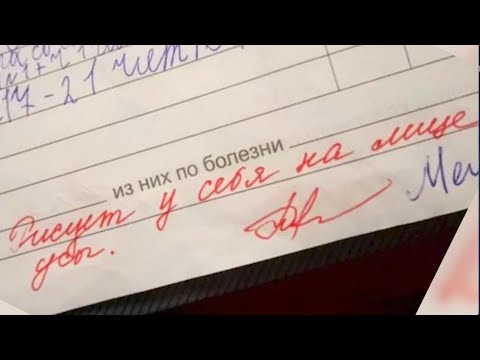 17-21 чет
из них по болезни
Рисует у себя на лице
усы.